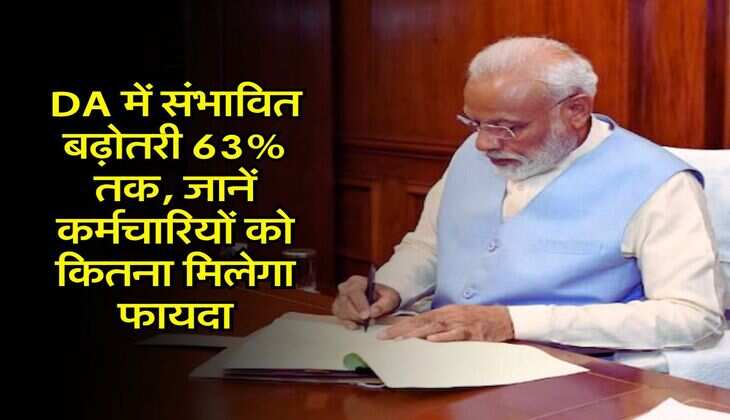 DA में संभावित
बढ़ोतरी 63%
तक, जानें
कर्मचारियों को
कितना मिलेगा
फायदा